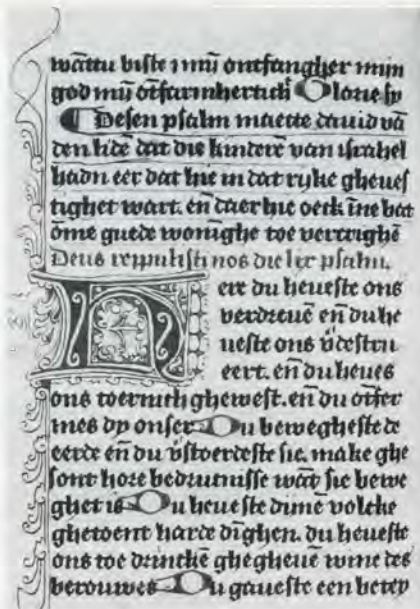 wāttu biste i mȳ ontfangher mijn
god mȳ ōtfarmhertich Glorie sy
Desen psalm maecte dauid vā
den lidē dat die kinderē van israhel
hadn eer dat hie in dat ryke gheues
tighet wart. en̄ daer hie oeck īne bat
ōme guede woninghe toe vercrighē
Deus reppulisti nos die lix psalm.
Here du heueste ons
verdreuē en̄ du he
ueste ons v̄destru
eert. en̄ du heues
ons toernich ghewest. en̄ du ōtfer
mes dy onser Du beweghesте de
eerde en̄ du v̄stoerdeste sie. make ghe
sont hore bedructnisse wāt sie bewe
ghet is Du heueste dimē volcke
ghetoent harde dīghen. du heueste
ons toe drinckē ghegheuē wine des
berouwes Du gaueste een beteȳ